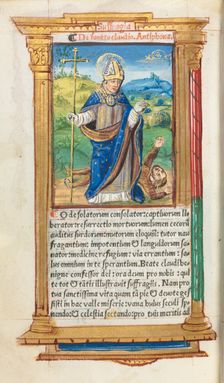 Suffragia
De sancto claudio. Antiphona.
O desolatorum consolator: captiuorum li
berator: resurrectio mortuorum: lumen cecorū
auditus surdorum: mutorum eloquiū: tutor nau
fragantium: impotentium et languidorum
sanator: medicine refugium: via errantium:
salus omnium in te sperantium. Beate claudi be
nigne confessor dei: ora deum pro nobis: q
ut te tāti illustrauit suffragiis. Nam pro
tua sanctissima vita quam tā pie et deuote ges
sisti in hac valle miserie: vana huius seculi sp
nendo: et celestia sectando: pro tuis meritis ad